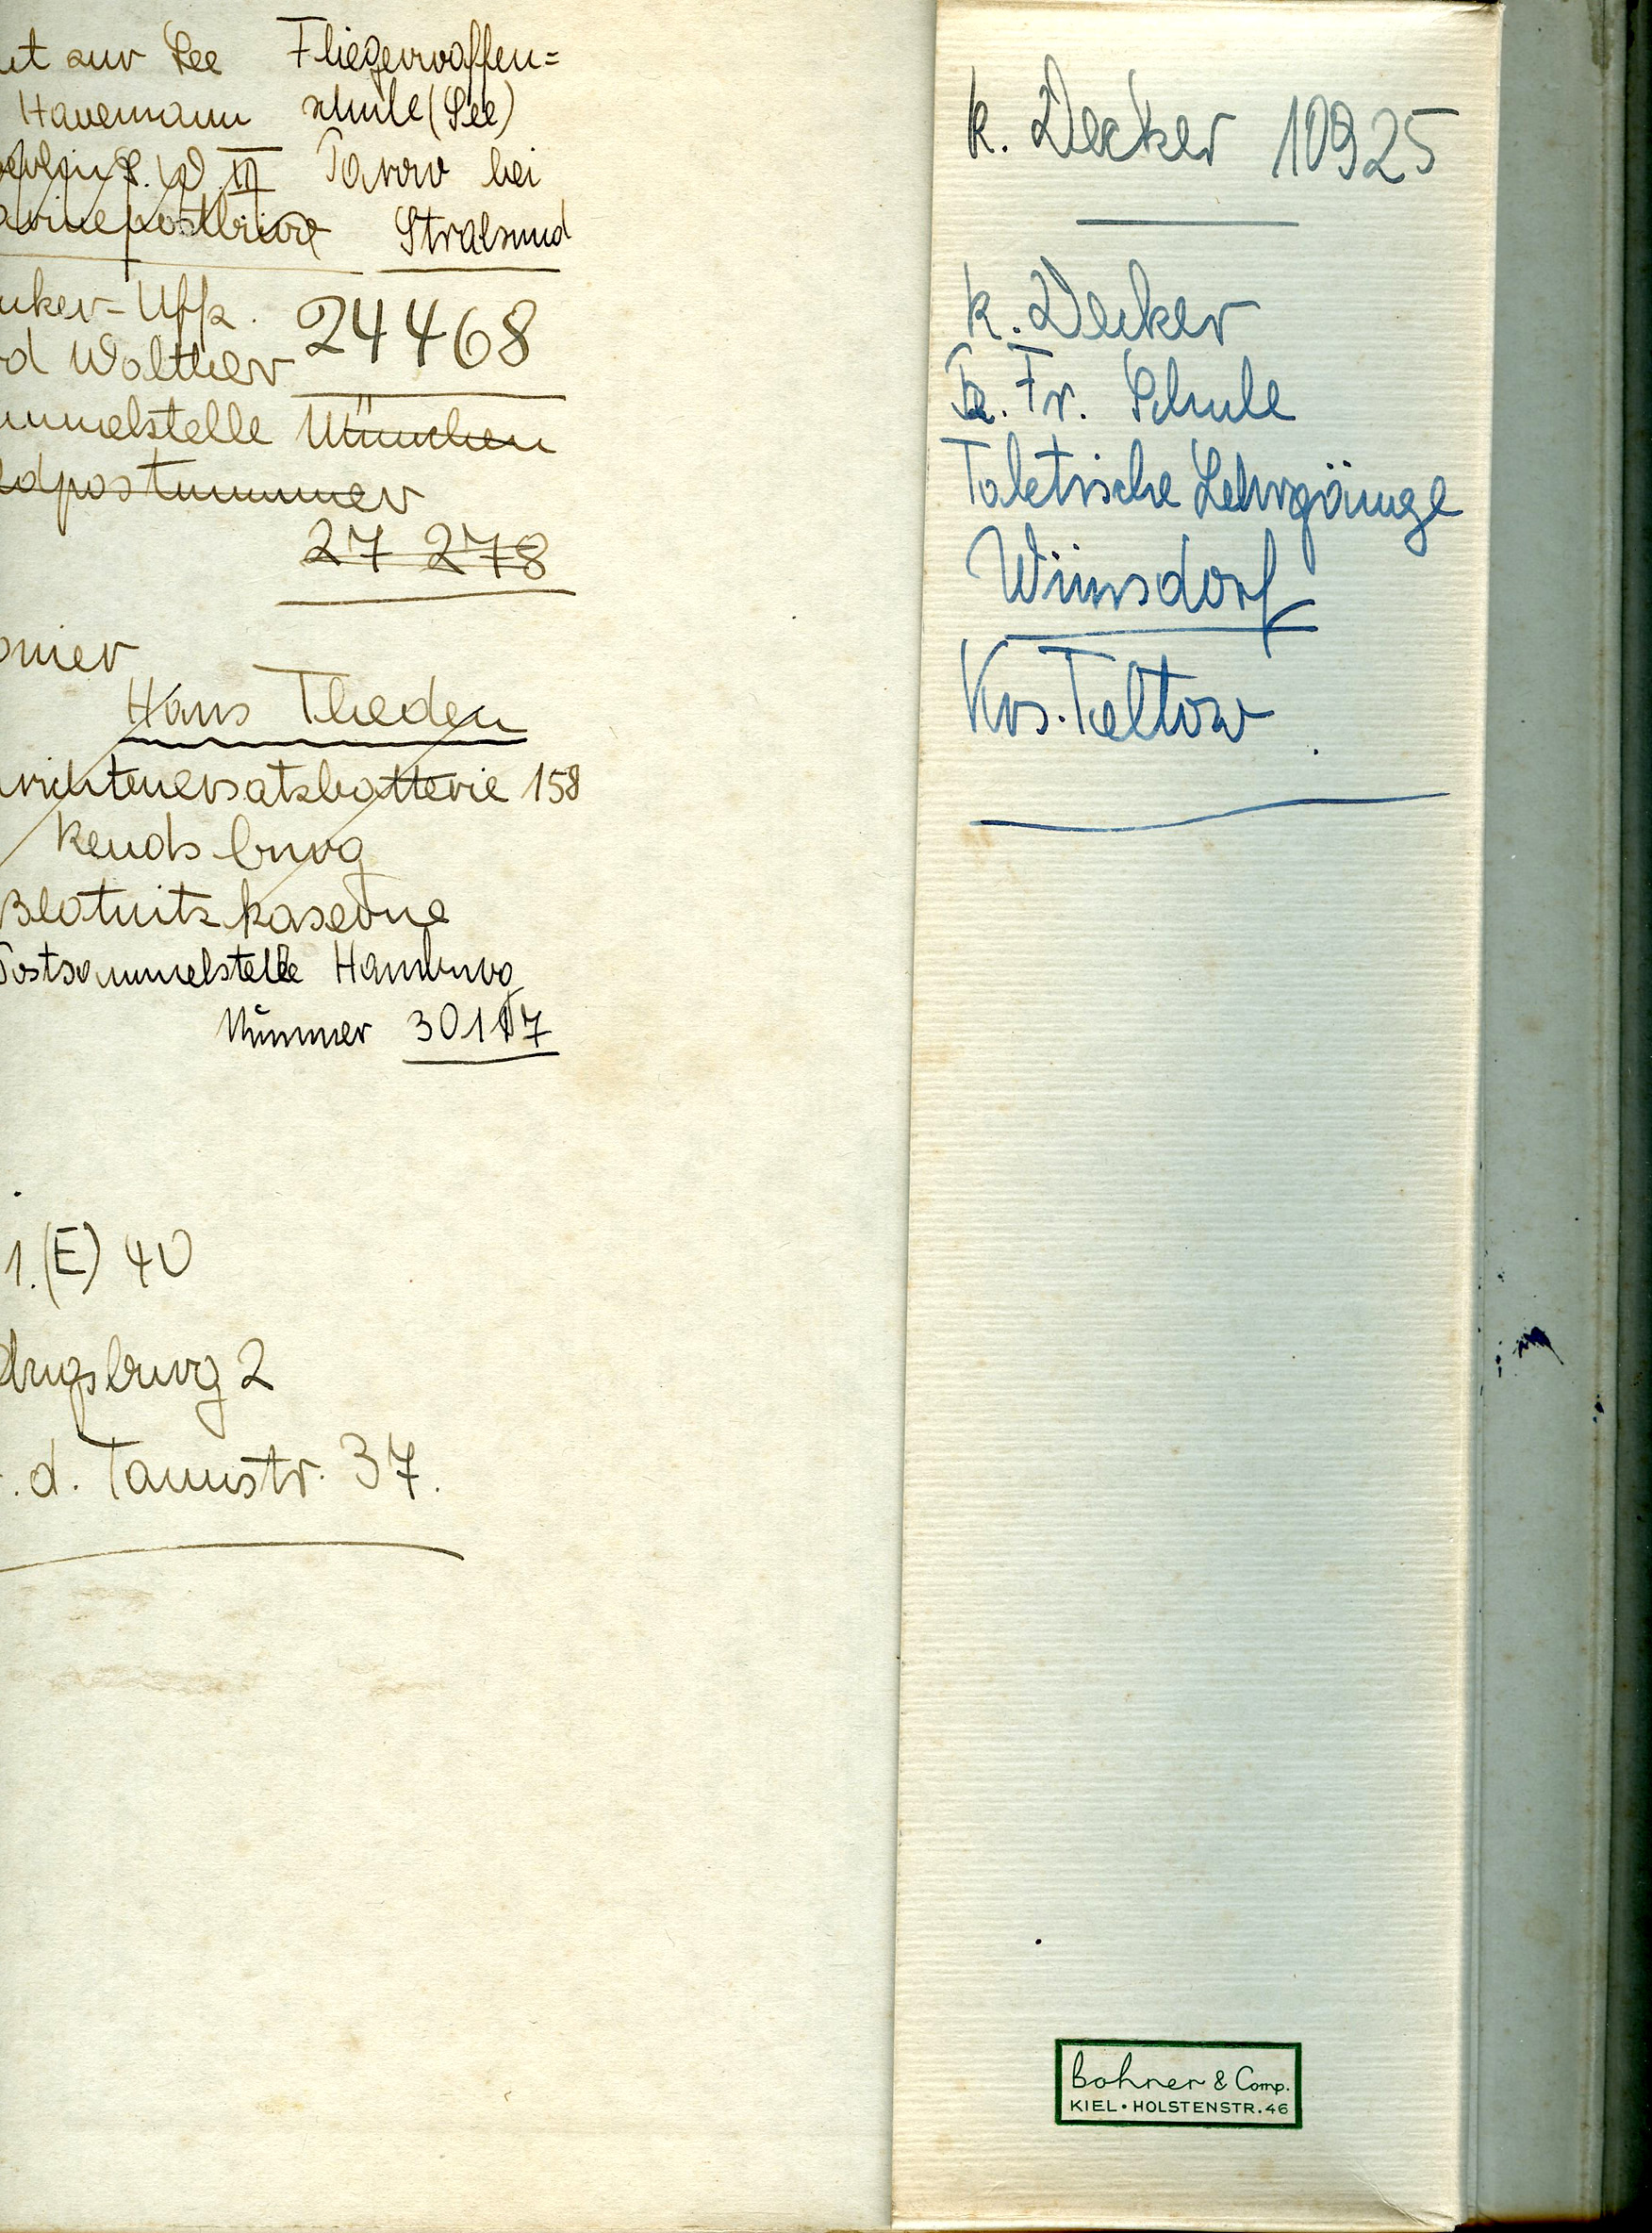 ut zur See Fliegerwaffen=
Havemann schule (See)
Parow bei
Stralsund
nker-Uffz. 24468
d Walther
mmelstelle München
ldpostnummer
27 278
onier
Hans Theden
richtenersatzbatterie 158
Rendsburg
Blatnitzkaserne
Postsammelstelle Hamburg
Nummer 30117
1.(E) 40
Augsburg 2
. d. Tannstr. 37.
K. Decker 10925
K. Decker
Fr. Schule
Taktische Lehrgänge
Wünsdorf
Krs. Teltow
bohner & Comp.
KIEL • HOLSTENSTR. 46